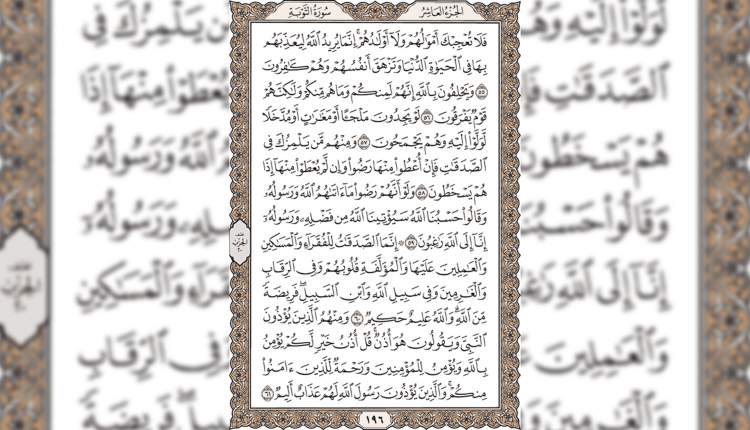 سُورَةُ التَّوْبَةِ
الجُزْءُ العَاشِرُ
فَلَا تُعْجِبْكَ أَمْوَٰلُهُمْ وَلَآ أَوْلَٰدُهُمْ ۚ إِنَّمَا يُرِيدُ ٱللَّهُ لِيُعَذِّبَهُم
بِهَا فِى ٱلْحَيَوٰةِ ٱلدُّنْيَا وَتَزْهَقَ أَنفُسُهُمْ وَهُمْ كَٰفِرُونَ
٥٥ وَيَحْلِفُونَ بِٱللَّهِ إِنَّهُمْ لَمِنكُمْ وَمَا هُم مِّنكُمْ وَلَٰكِنَّهُمْ
قَوْمٌ يَفْرَقُونَ ٥٦ لَوْ يَجِدُونَ مَلْجَـًٔا أَوْ مَغَٰرَٰتٍ أَوْ مُدَّخَلًا
لَّوَلَّوْا۟ إِلَيْهِ وَهُمْ يَجْمَحُونَ ٥٧ وَمِنْهُم مَّن يَلْمِزُكَ فِى
ٱلصَّدَقَٰتِ فَإِنْ أُعْطُوا۟ مِنْهَا رَضُوا۟ وَإِن لَّمْ يُعْطَوْا۟ مِنْهَآ إِذَا
هُمْ يَسْخَطُونَ ٥٨ وَلَوْ أَنَّهُمْ رَضُوا۟ مَآ ءَاتَىٰهُمُ ٱللَّهُ وَرَسُولُهُۥ
وَقَالُوا۟ حَسْبُنَا ٱللَّهُ سَيُؤْتِينَا ٱللَّهُ مِن فَضْلِهِۦ وَرَسُولُهُۥٓ
إِنَّآ إِلَى ٱللَّهِ رَٰغِبُونَ ٥٩ ۞ إِنَّمَا ٱلصَّدَقَٰتُ لِلْفُقَرَآءِ وَٱلْمَسَٰكِينِ
وَٱلْعَٰمِلِينَ عَلَيْهَا وَٱلْمُؤَلَّفَةِ قُلُوبُهُمْ وَفِى ٱلرِّقَابِ
وَٱلْغَٰرِمِينَ وَفِى سَبِيلِ ٱللَّهِ وَٱبْنِ ٱلسَّبِيلِ ۖ فَرِيضَةً
مِّنَ ٱللَّهِ ۗ وَٱللَّهُ عَلِيمٌ حَكِيمٌ ٦٠ وَمِنْهُمُ ٱلَّذِينَ يُؤْذُونَ
ٱلنَّبِىَّ وَيَقُولُونَ هُوَ أُذُنٌ ۚ قُلْ أُذُنُ خَيْرٍ لَّكُمْ يُؤْمِنُ
بِٱللَّهِ وَيُؤْمِنُ لِلْمُؤْمِنِينَ وَرَحْمَةٌ لِّلَّذِينَ ءَامَنُوا۟
مِنكُمْ ۚ وَٱلَّذِينَ يُؤْذُونَ رَسُولَ ٱللَّهِ لَهُمْ عَذَابٌ أَلِيمٌ ٦١
١٩٦